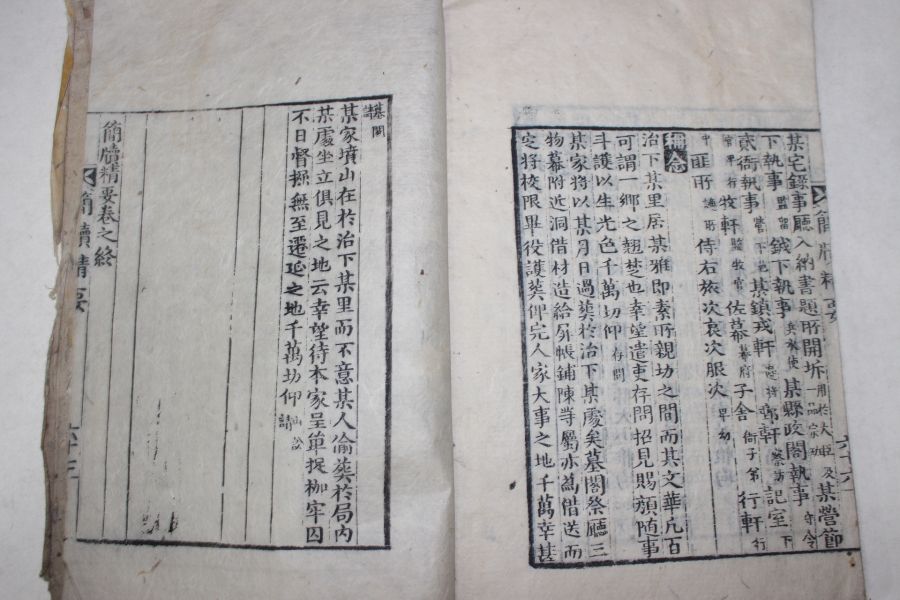 某宅錄事廳入納書題所開坼
下執事
鉞下執事
某縣政閤執事
守令
貳衙執事
某鎭戎軒
記室
牧軒
佐幕
幕府
子舍
行軒
匪所
侍右旅次哀次服次
稱念
治下某里居某雅即素所親切之間而其文華凡百
可謂一鄕之翹楚也幸望遣吏存問招見賜顔隨事
斗護以生光色千萬切仰
存問
某家將以某月日過葬於治下某處矣墓閣祭廳三
物幕附近洞借材造給屛帳鋪陳等屬亦爲借送而
定將校限畢役護葬俾完人家大事之地千萬幸甚
某家墳山在於治下某里而不意某人偸葬於局內
某處坐立俱見之地云幸望待本家呈單捉枷牢囚
不日督掘無至遷延之地千萬切仰
簡牘精要卷之終
簡牘精要